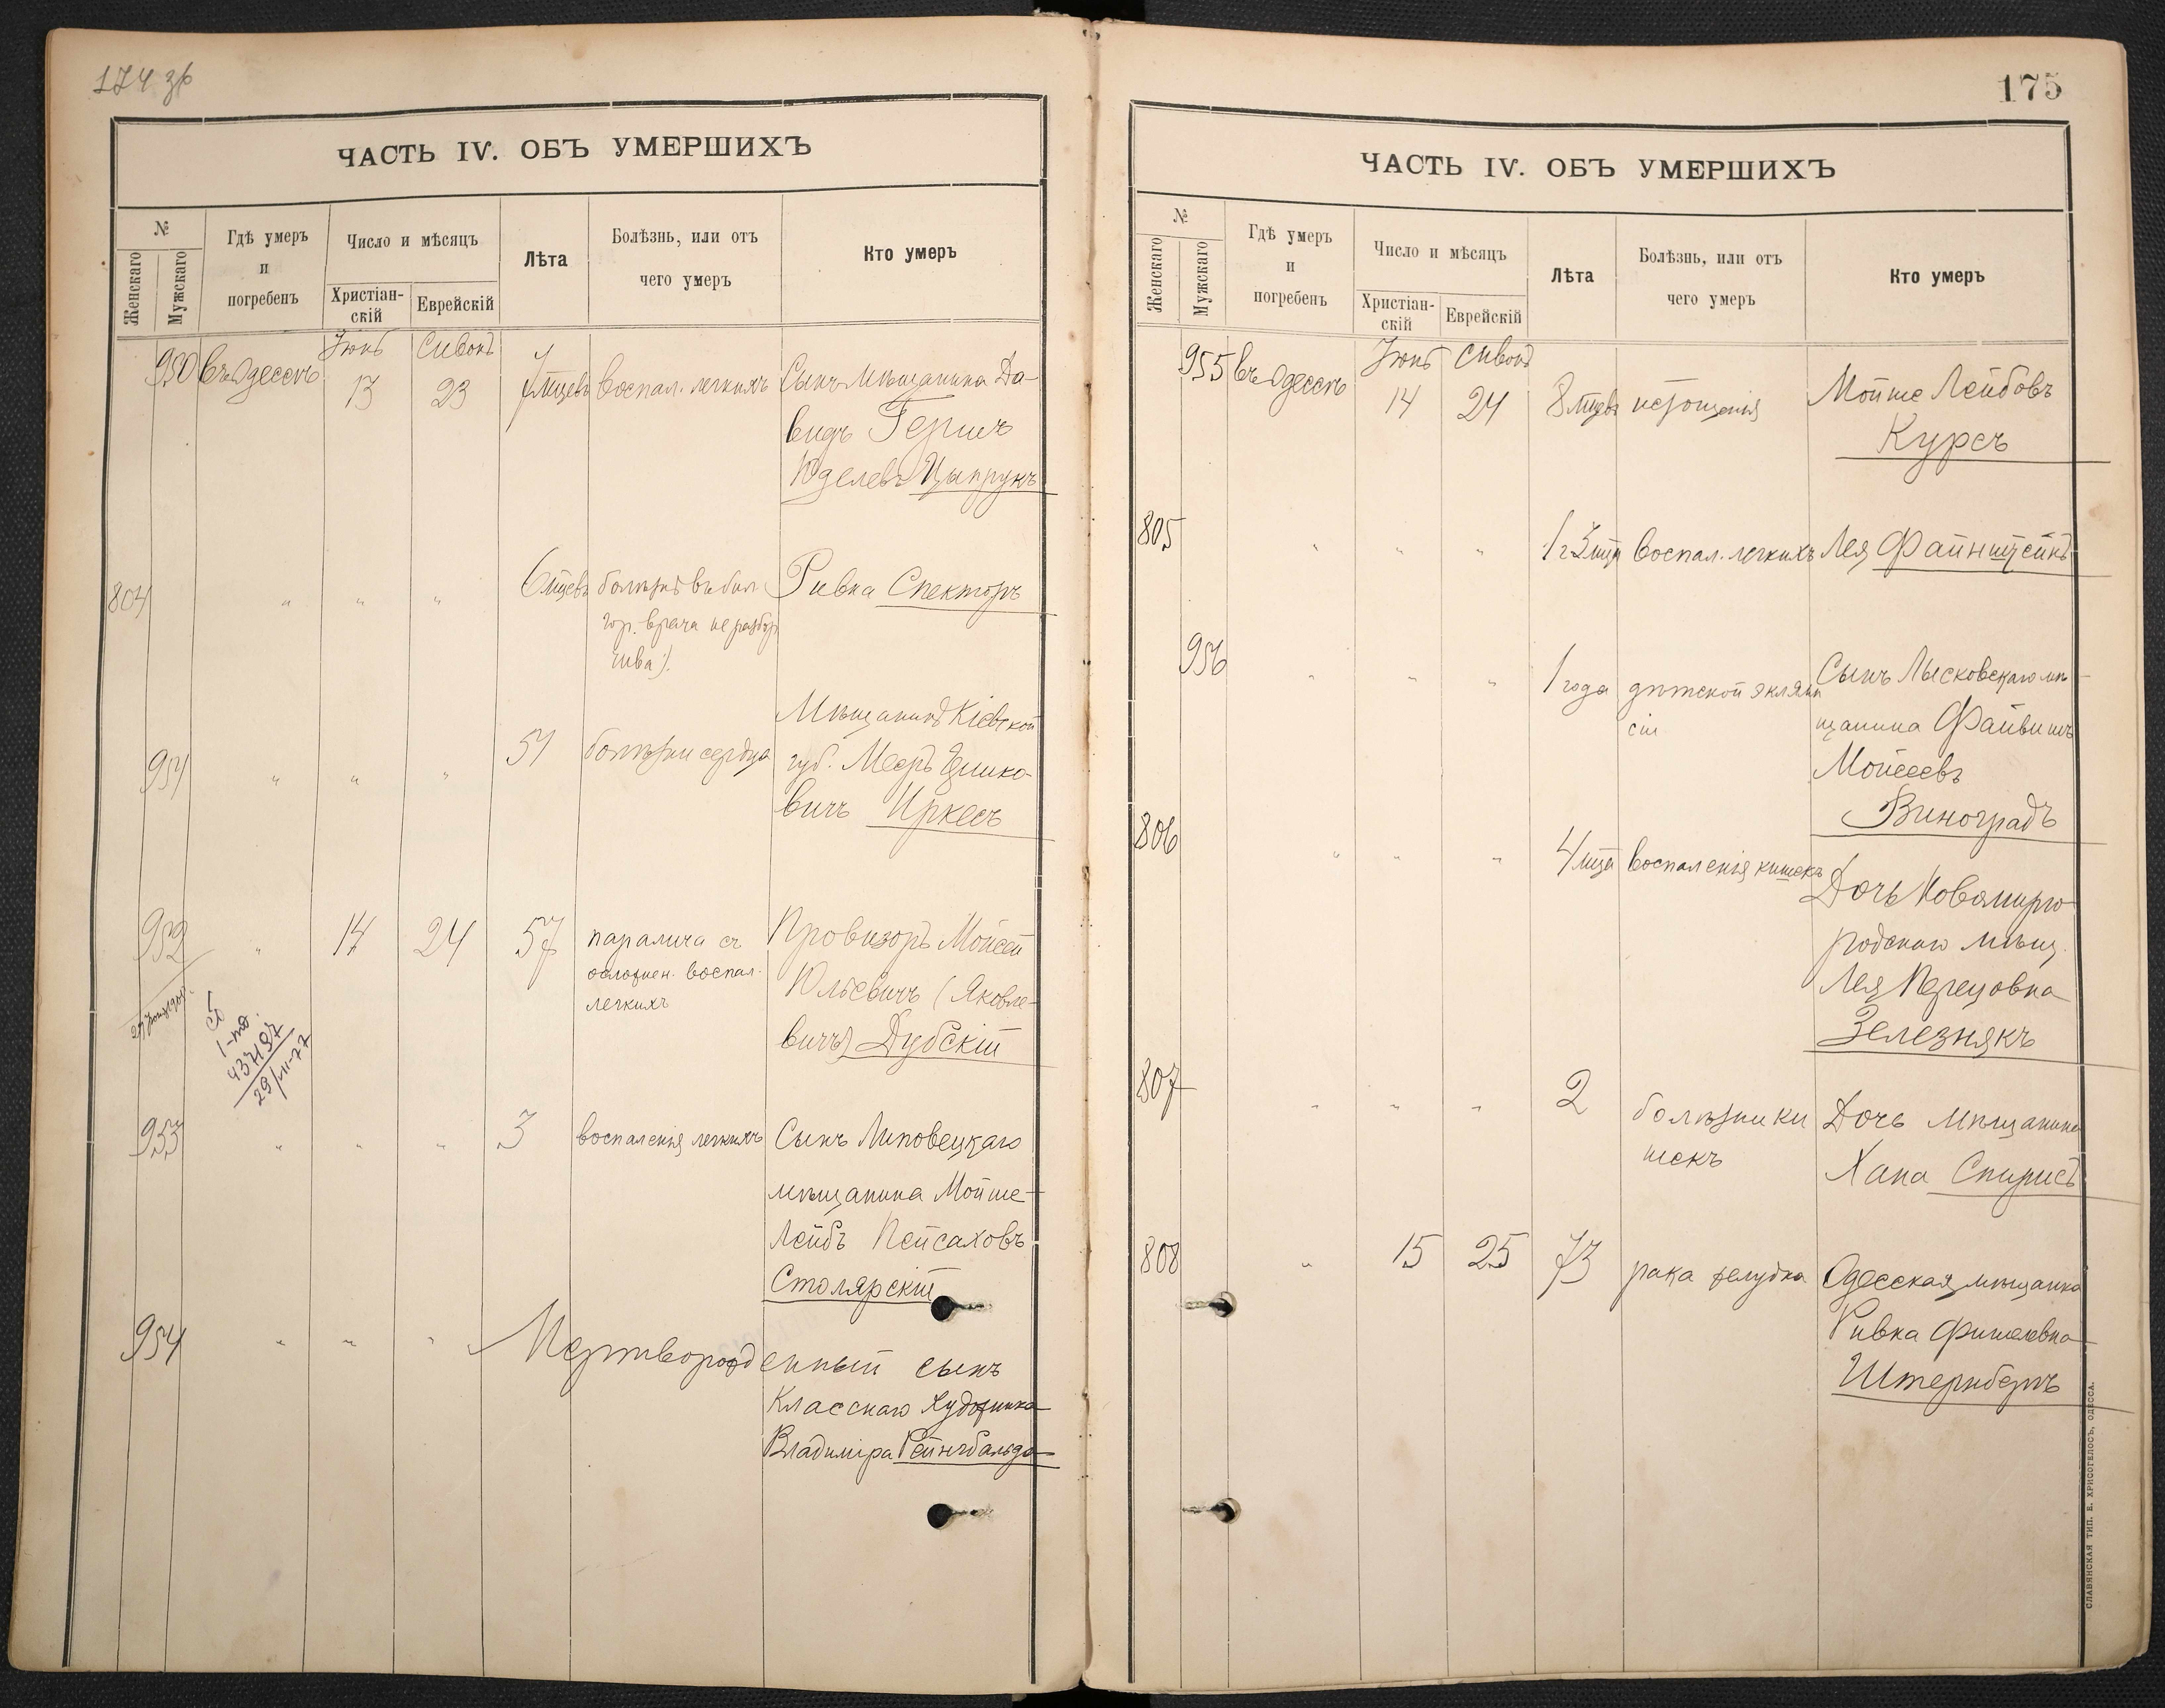 174 зв
ЧАСТЬ IV. ОБЪ УМЕРШИХЪ
№
Женскаго
Мужскаго
Гдѣ умеръ
и
погребенъ
Число и мѣсяцъ
Христіан-
скій
Еврейскій
Лѣта
Болѣзнь, или отъ
чего умеръ
Кто умеръ
Іюнь Сивонъ
950 въ Одессѣ 13 23 7 мцевъ воспал. легкихъ Сынъ мѣщанина Да-
видъ Гершъ
Юделевъ Ципрукъ
804 " " " 6 мцевъ болѣзнь въ бил. Ривка Спекторъ
гор. врача не разбор
чива).
Мѣщанинъ Кіевской
951 " " " 51 болѣзни сердца губ. Мееръ Ицко-
вичъ Иркесъ
952 " 14 24 57 паралича съ Провизоръ Мойсей
осложнен. воспал. Юльевичъ (Яковле-
легкихъ
вичъ) Дубскій
1-го
437197
29/VII-77
953 " " " 3 воспаленія легкихъ Сынъ Липовецкаго
мѣщанина Мойше-
Лейбъ Пейсаховъ
Столярскій
954 " " " Мертворожденный сынъ
Класснаго Художника
Владиміра Рейнгбальда
175
ЧАСТЬ IV. ОБЪ УМЕРШИХЪ
№
Женскаго
Мужскаго
Гдѣ умеръ
и
погребенъ
Число и мѣсяцъ
Христіан-
скій
Еврейскій
Лѣта
Болѣзнь, или отъ
чего умеръ
Кто умеръ
Іюнь Сивонъ
955 въ Одессѣ 14 24 8 мцевъ истощенія Мойше Лейбовъ
Курсъ
805 " " " 1 г 3 мца воспал. легкихъ Лея Файнштейнъ
956 " " " 1 года дѣтской эклямп Сынъ Лысковскаго мѣ-
сіи щанина Файвишъ
Мойсеевъ
Виноградъ
806 " " " 4 мца воспаленія кишекъ Дочь Новомирго
родскаго мѣщ.
Лея Перецовна
Зелезнякъ
807 " " " 2 болѣзни ки Дочь мѣщанина
шекъ Хана Спирисъ
808 " 15 25 73 рака желудка Одесская мѣщанка
Ривка Фишелевна
Штернбергъ
СЛАВЯНСКАЯ ТИП. Е. ХРИСОГЕЛОСЪ, ОДЕССА.